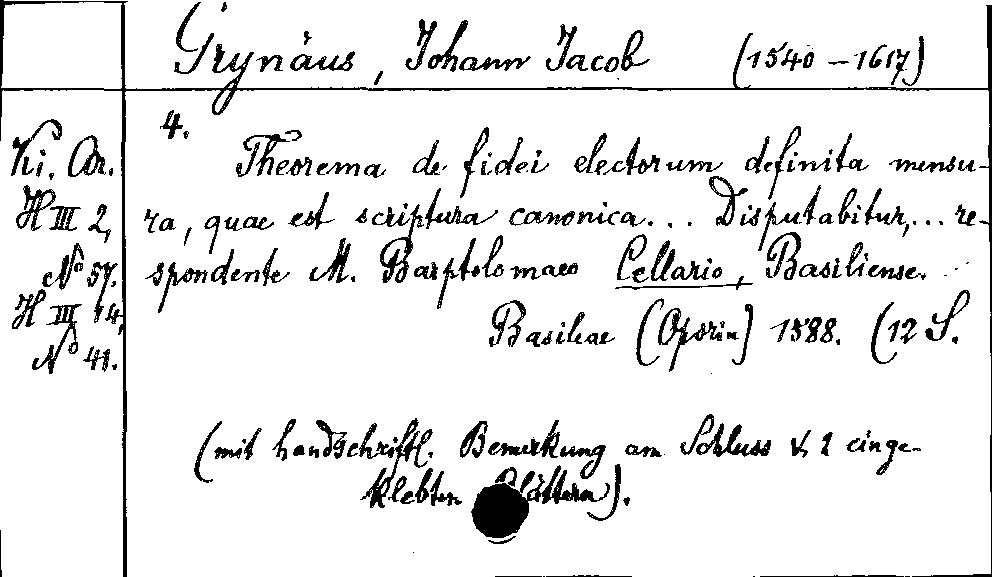 Grynäus, Johann Jacob (1540–1617)
4.
Ki. Ar.
H III 2,
No 57.
H III 14,
No 41.
Theorema de fidei electorum definita mensu-
ra, quae est scriptura canonica... Disputabitur,... re-
spondente M. Barptolomaeo Cellario, Basiliense.
Basileae (Oporin) 1588. (12 S.
(mit handschriftl. Bemerkung am Schluss & 2 einge-
klebten Blättern).